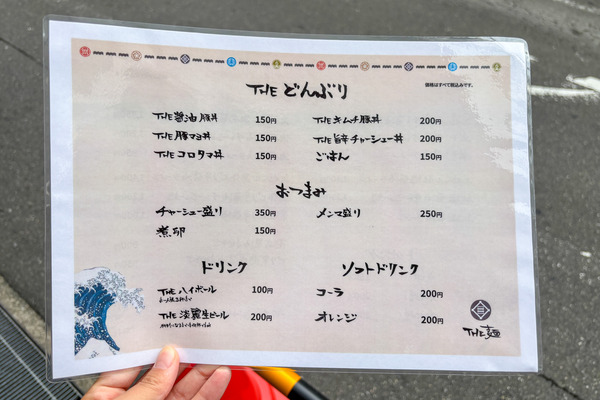 THE どんぶり
価格はすべて税込みです。
THE 醤油豚丼 150円 THE キムチ豚丼 200円
THE 豚マヨ丼 150円 THE 旨辛チャーシュー丼 200円
THE コロタマ丼 150円 ごはん 150円
おつまみ
チャーシュー盛り 350円 メンマ盛り 250円
煮卵 150円
ドリンク ソフトドリンク
THE ハイボール 100円 コーラ 200円
THE 淡麗生ビール 200円 オレンジ 200円
THE 麺